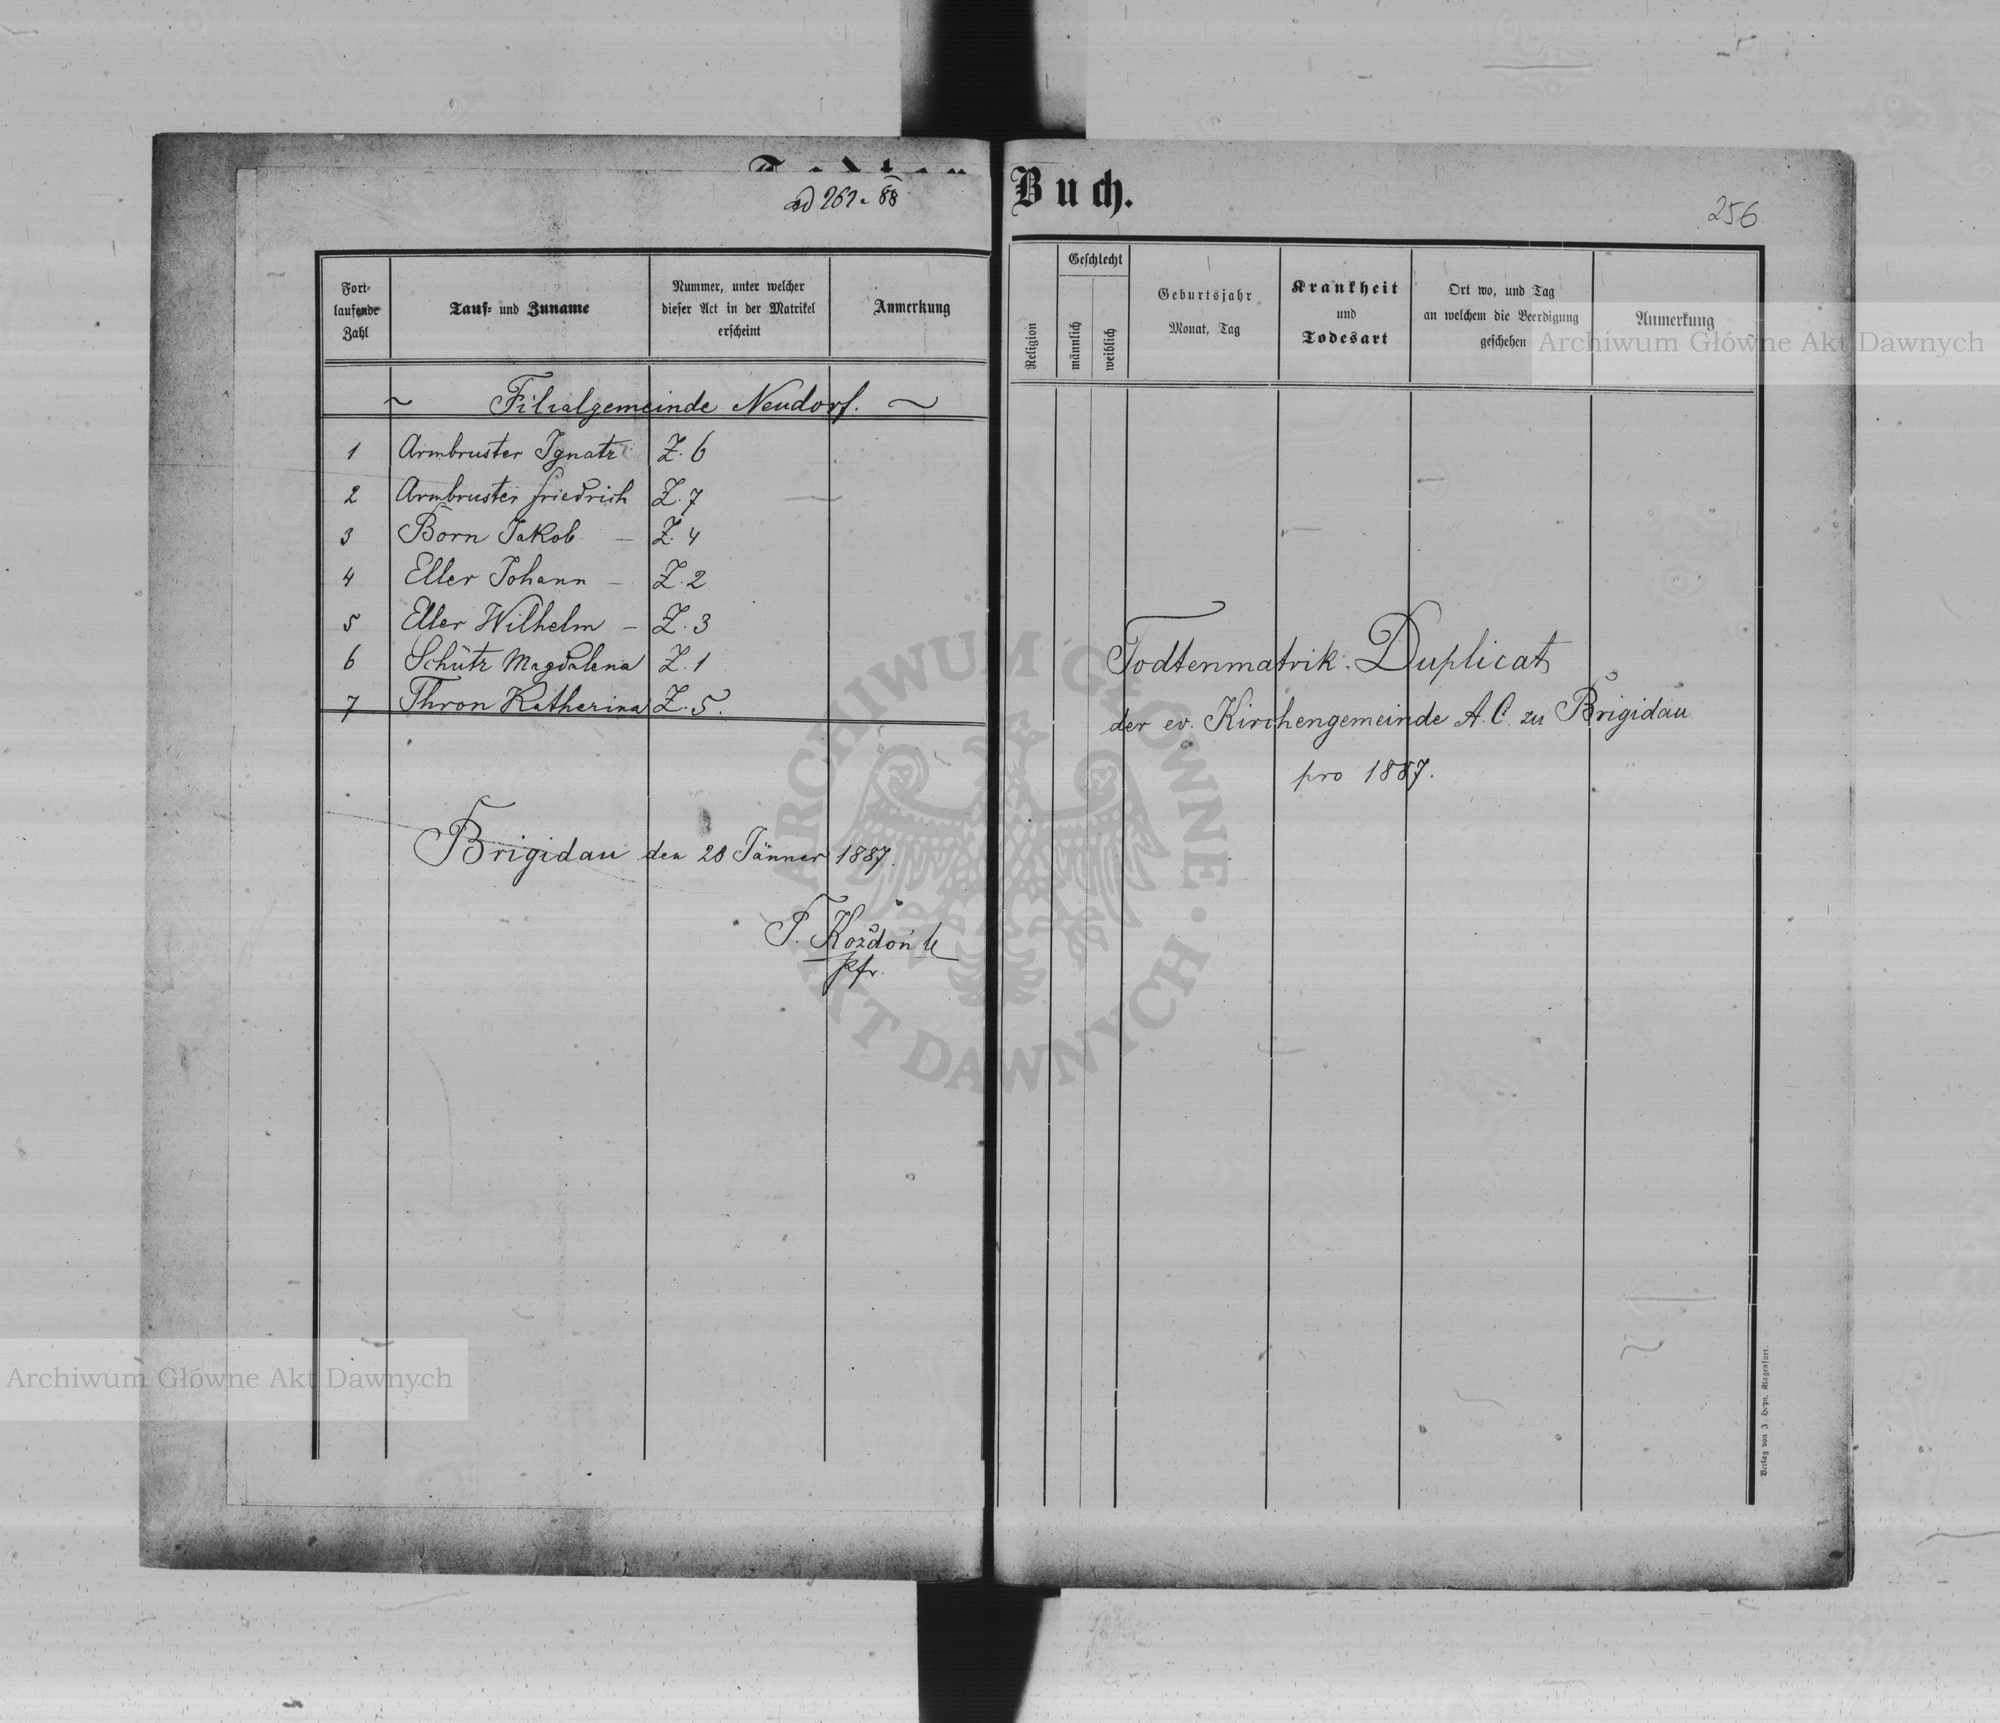 Buch.
ad 262 a. 88
256
Fort-
laufende
Zahl
Tauf- und Zuname
Nummer, unter welcher
dieser Act in der Matrikel
erscheint
Anmerkung
Filialgemeinde Neudorf.
1 Armbruster Ignatz Z. 6
2 Armbruster Friedrich Z. 7
3 Born Jakob – Z. 4
4 Eller Johann – Z. 2
5 Eller Wilhelm – Z. 3
6 Schütz Magdalena Z. 1
7 Thron Katherina Z. 5.
Brigidau den 20 Jänner 1887.
Kozdoń
Pfr.
Religion
Geschlecht
männlich
weiblich
Geburtsjahr
Monat, Tag
Krankheit
und
Todesart
Ort wo, und Tag
an welchem die Beerdigung
geschehen
Anmerkung
Todtenmatrik-Duplicat
der ev. Kirchengemeinde A. C. zu Brigidau
pro 1887.
Verlag von J. Heyn, Klagenfurt.
Archiwum Główne Akt Dawnych
ARCHIWUM GŁÓWNE AKT DAWNYCH
Archiwum Główne Akt Dawnych